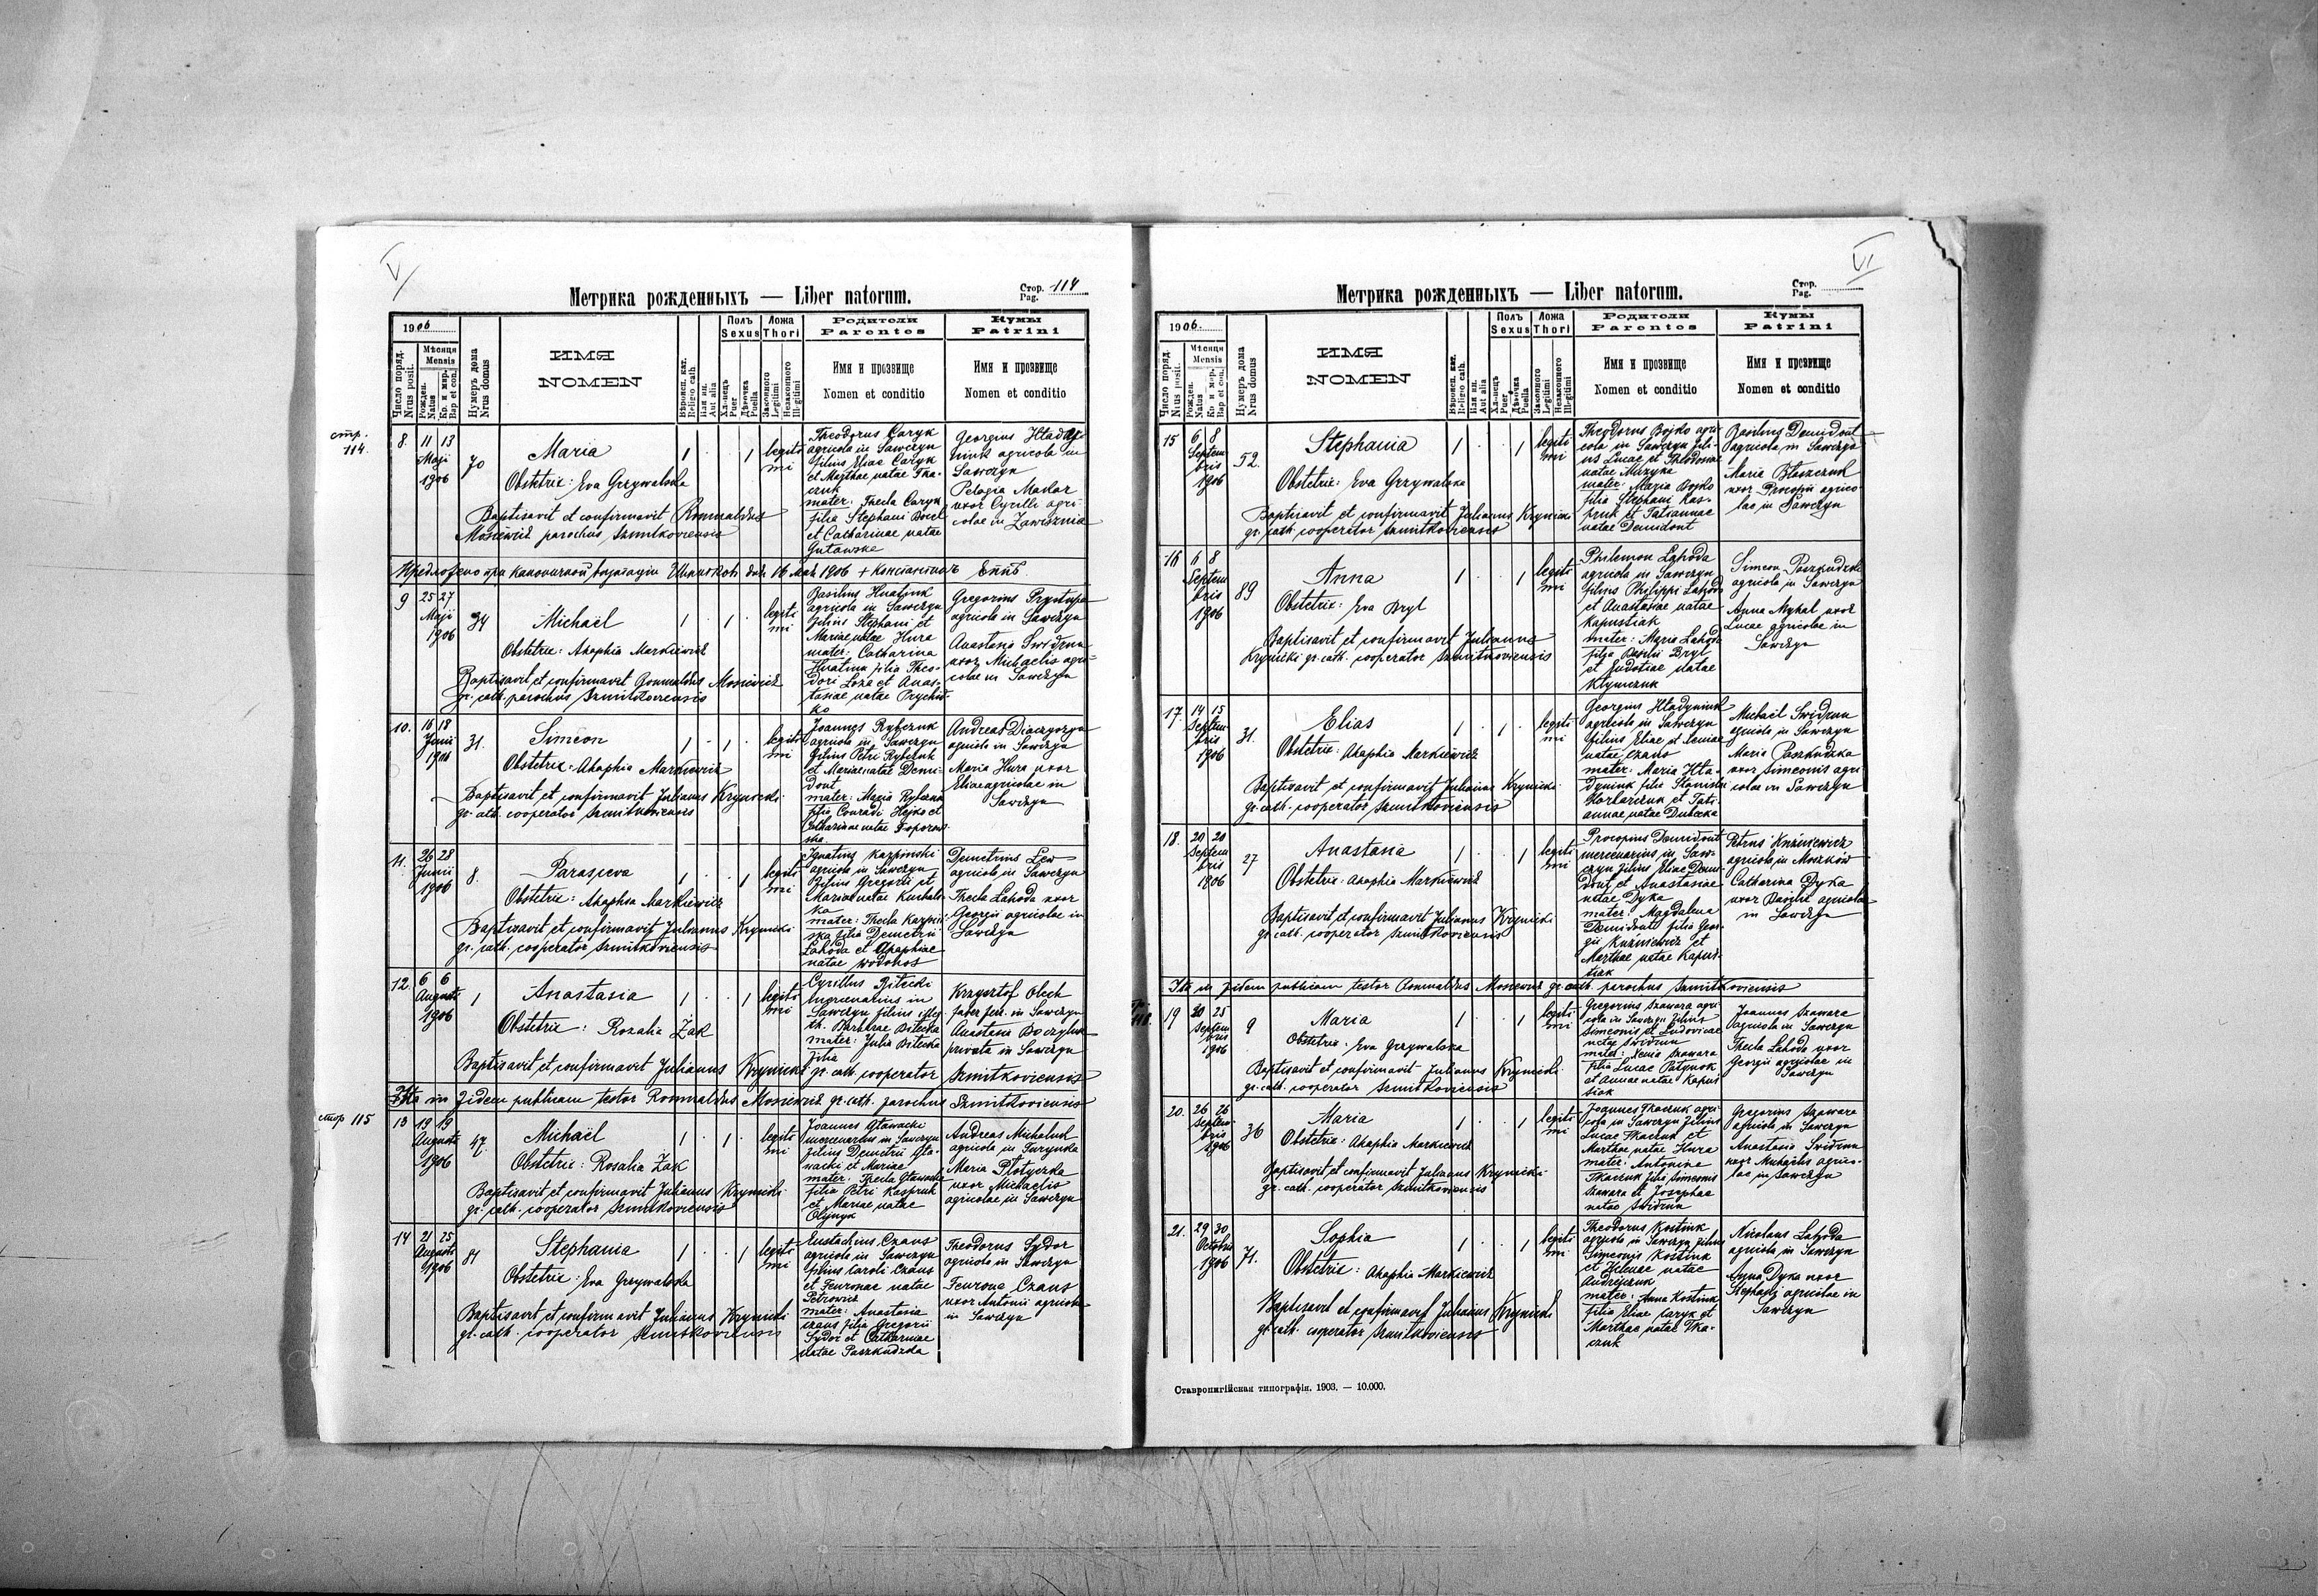 V
Метрика рожденныхъ — Liber natorum.
Стор. Pag. 114
1906
Число поряд. Nrus posit.
Мѣсяця Mensis
Рожден. Natus
Кр. и мир. Bap et con.
Нумеръ дома Nrus domus
ИМЯ
NOMEN
Вѣроисп. кат. Religo cath.
Или ин. Aut alia
Полъ Sexus
Хлопецъ Puer
Дѣвочка Puella
Ложа Thori
Законного Legitimi
Незаконного Illegitimi
Родители
Parentes
Имя и прозвище
Nomen et conditio
Кумы
Patrini
Имя и прозвище
Nomen et conditio
стр. 114.
8 11 13 Maji 1906 70
Maria
1 . . 1 legitimi
Obstetrix: Eva Grzywalska
Baptisavit et confirmavit Romualdus
Mosiewicz parochus Szmitkoviensis
Theodorus Caryk
agricola in Sawczyn
filius Eliae Caryk
et Marthae natae Tka-
czuk
mater: Thecla Caryk
filia Stephani
et Catharinae natae
Gutawske
Georgius
agricola in
Sawczyn
Pelagia Makar
uxor Cyrilli agri-
colae in Zawisznia
9 25 27 Maji 1906 34
Michaël
1 . 1 . legitimi
Obstetrix: Ahaphia Markiewicz
Baptisavit et confirmavit Romualdus Mosiewicz
gr. cath. parochus Szmitkoviensis
Basilius Hnatiuk
agricola in Sawczyn
filius Stephani et
Mariae natae Hura
mater: Catharina
Hnatiuk filia Theo-
dori Loza et Anas-
tasiae natae Prychid-
ko
Gregorius Prystupa
agricola in Sawczyn
Anastasia Swidrun
uxor Michaelis agri-
colae in Sawczyn
10. 16 18 Junii 1906 31.
Simeon
1 . 1 . legitimi
Obstetrix: Ahaphia Markiewicz
Baptisavit et confirmavit Julianus Krynicki
gr. cath. cooperator Szmitkoviensis
Joannes Rybczuk
agricola in Sawczyn
filius Petri Rybczuk
et Mariae natae Demi-
dont
mater: Maria Rybczuk
filia Conradi Hejko et
Catharinae natae
Andreas
agricola in Sawczyn
Maria Hura uxor
Eliae agricolae in
Sawczyn
11. 26 28 Junii 1906 8.
Parasceva
1 . . 1 legitimi
Obstetrix: Ahaphia Markiewicz
Baptisavit et confirmavit Julianus Krynicki
gr. cath. cooperator Szmitkoviensis
Ignatius Karpinski
agricola in Sawczyn
filius Gregorii et
Mariae natae
mater: Thecla Karpin-
ska filia Demetrii
Lahoda et Ahaphiae
natae Wodonos
Demetrius Lew
agricola in Sawczyn
Thecla Lahoda uxor
Georgii agricolae in
Sawczyn
12. 6 6 Augusti 1906 1
Anastasia
1 . . 1 legitimi
Obstetrix: Rozalia Żak
Baptisavit et confirmavit Julianus Krynicki gr. cath. cooperator Szmitkoviensis
Cyrillus Bilecki
in
Sawczyn filius illeg
th. Barbarae Bilecka
mater: Julia Bilecka
filia
Krzysztof Olech
faber ferr. in Sawczyn
Anastasia
privata in Sawczyn
Ita in fidem publicam testor Romualdus Mosiewicz gr. cath. parochus Szmitkoviensis
стор 115
13 19 19 Augusti 1906 47.
Michaël
1 . 1 . legitimi
Obstetrix: Rosalia Żak
Baptisavit et confirmavit Julianus Krynicki
gr. cath. cooperator Szmitkoviensis
Joannes Gławacki
mercenarius in Sawczyn
filius Demetrii Gła-
wacki et Mariae
mater: Thecla Gławacka
filia Petri Kaspruk
et Mariae natae
Olijnyk
Andreas Michaluk
agricola in Turynka
Maria
uxor Michaelis
agricolae in Sawczyn
14 21 25 Augusti 1906 81
Stephania
1 . . 1 legitimi
Obstetrix: Eva Grzywalska
Baptisavit et confirmavit Julianus Krynicki
gr. cath. cooperator Szmitkoviensis
Eustachius Czaus
agricola in Sawczyn
filius Caroli Czaus
et Feuronae natae
Petrowicz
mater: Anastasia
Czaus filia Gregorii
Sydor et Catharinae
natae Paszkudzka
Theodorus Sydor
agricola in Sawczyn
Feurona Czaus
uxor Antonii agricolae
in Sawczyn
VI
Метрика рожденныхъ — Liber natorum.
Стор. Pag.
1906.
Число поряд. Nrus posit.
Мѣсяця Mensis
Рожден. Natus
Кр и мир. Bap et con.
Нумеръ дома Nrus domus
ИМЯ
NOMEN
Вѣроисп. кат. Religo cath.
Или ин. Aut alia
Полъ Sexus
Хлопецъ Puer
Дѣвочка Puella
Ложа Thori
Законного Legitimi
Незаконного Illegitimi
Родители
Parentes
Имя и прозвище
Nomen et conditio
Кумы
Patrini
Имя и прозвище
Nomen et conditio
15 6 8 Septembris 1906 52.
Stephania
1 . . 1 legitimi
Obstetrix: Eva Grzywalska
Baptisavit et confirmavit Julianus Krynicki
gr. cath cooperator Szmitkoviensis
Theodorus Bojko agri-
cola in Sawczyn fili-
us Lucae et Theodosiae
natae Muzyka
mater: Maria Bojko
filia Stephani Kas-
zruk et Tatiannae
natae Demidont
Basilius Demidont
agricola in Sawczyn
Maria Błaszczuk
uxor Procopii agrico-
lae in Sawczyn
16 6 8 Septembris 1906 89
Anna
1 . . 1 legitimi
Obstetrix: Eva Bryl
Baptisavit et confirmavit Julianus
Krynicki gr. cath. cooperator Szmitkoviensis
Philemon Lahoda
agricola in Sawczyn
filius Philippi Lahoda
et Anastasiae natae
Kapustiak
mater: Maria Lahoda
filia Basilii Bryl
et Eudotiae natae
Klymczuk
Simeon Paszkudzki
agricola in Sawczyn
Anna Mykal uxor
Lucae agricolae in
Sawczyn
17. 14 15 Septembris 1906 31.
Elias
1 . 1 . legitimi
Obstetrix: Ahaphia Markiewicz
Baptisavit et confirmavit Julianus Krynicki
gr. cath. cooperator Szmitkoviensis
Georgius Hładyniuk
agricola in Sawczyn
filius Eliae et Xeniae
natae Czaus
mater: Maria Hła-
dyniuk filia Stanislai
et Tati-
annae natae Dubecka
Michaël Swidrun
agricola in Sawczyn
Maria Paszkudzka
uxor Simeonis agri-
colae in Sawczyn
18. 20 20 Septembris 1906 27
Anastasia
1 . . 1 legitimi
Obstetrix: Ahaphia Markiewicz
Baptisavit et confirmavit Julianus Krynicki
gr. cath. cooperator Szmitkoviensis
Procopius Demidont
mercenarius in Saw-
czyn filius Eliae Demi-
dont et Anastasiae
natae Dyka
mater: Magdalena
Demidont filia Geor-
gii Kuźniewicz et
Marthae natae Kapus-
tiak
Petrus Kuźniewicz
agricola in Moszków
Catharina Dyka
uxor Basilii agricolae
in Sawczyn
Ita in fidem publicam testor Romualdus Mosiewicz gr. cath. parochus Szmitkoviensis
19 20 25 Septembris 1906 9
Maria
1 . . 1 legitimi
Obstetrix: Eva Grzywalska
Baptisavit et confirmavit Julianus Krynicki
gr. cath. cooperator Szmitkoviensis
Gregorius Szawara agri-
cola in Sawczyn filius
Simeonis et Ludovicae
natae Swidrun
mater: Xenia Szawara
filia Lucae Patynok
et Annae natae Kapus
tiak
Joannes Szawara
agricola in Sawczyn
Thecla Lahoda uxor
Georgii agricolae in
Sawczyn
20. 26 26 Septembris 1906 36
Maria
1 . . 1 legitimi
Obstetrix: Ahaphia Markiewicz
Baptisavit et confirmavit Julianus Krynicki
gr. cath. cooperator Szmitkoviensis
Joannes Tkaczuk agri-
cola in Sawczyn filius
Lucae Tkaczuk et
Marthae natae Hura
mater: Antonina
Tkaczuk filia Simeonis
Szawara et Josephae
natae Swidrun
Gregorius Szawara
agricola in Sawczyn
Anastasia Swidrun
uxor Michaelis agrico-
lae in Sawczyn
21. 29 30 Octobris 1906 71.
Sophia
1 . . 1 legitimi
Obstetrix: Ahaphia Markiewicz
Baptisavit et confirmavit Julianus Krynicki
gr. cath. cooperator Szmitkoviensis
Theodorus Kostiuk
agricola in Sawczyn filius
Simeonis Kostiuk
et Helenae natae
Andrijczuk
mater: Anna Kostiuk
filia Eliae Caryk et
Marthae natae Tka-
czuk
Nicolaus Lahoda
agricola in Sawczyn
Anna Dyka uxor
Stephani agricolae in
Sawczyn
Ставропигійская типографія. 1903. — 10.000.